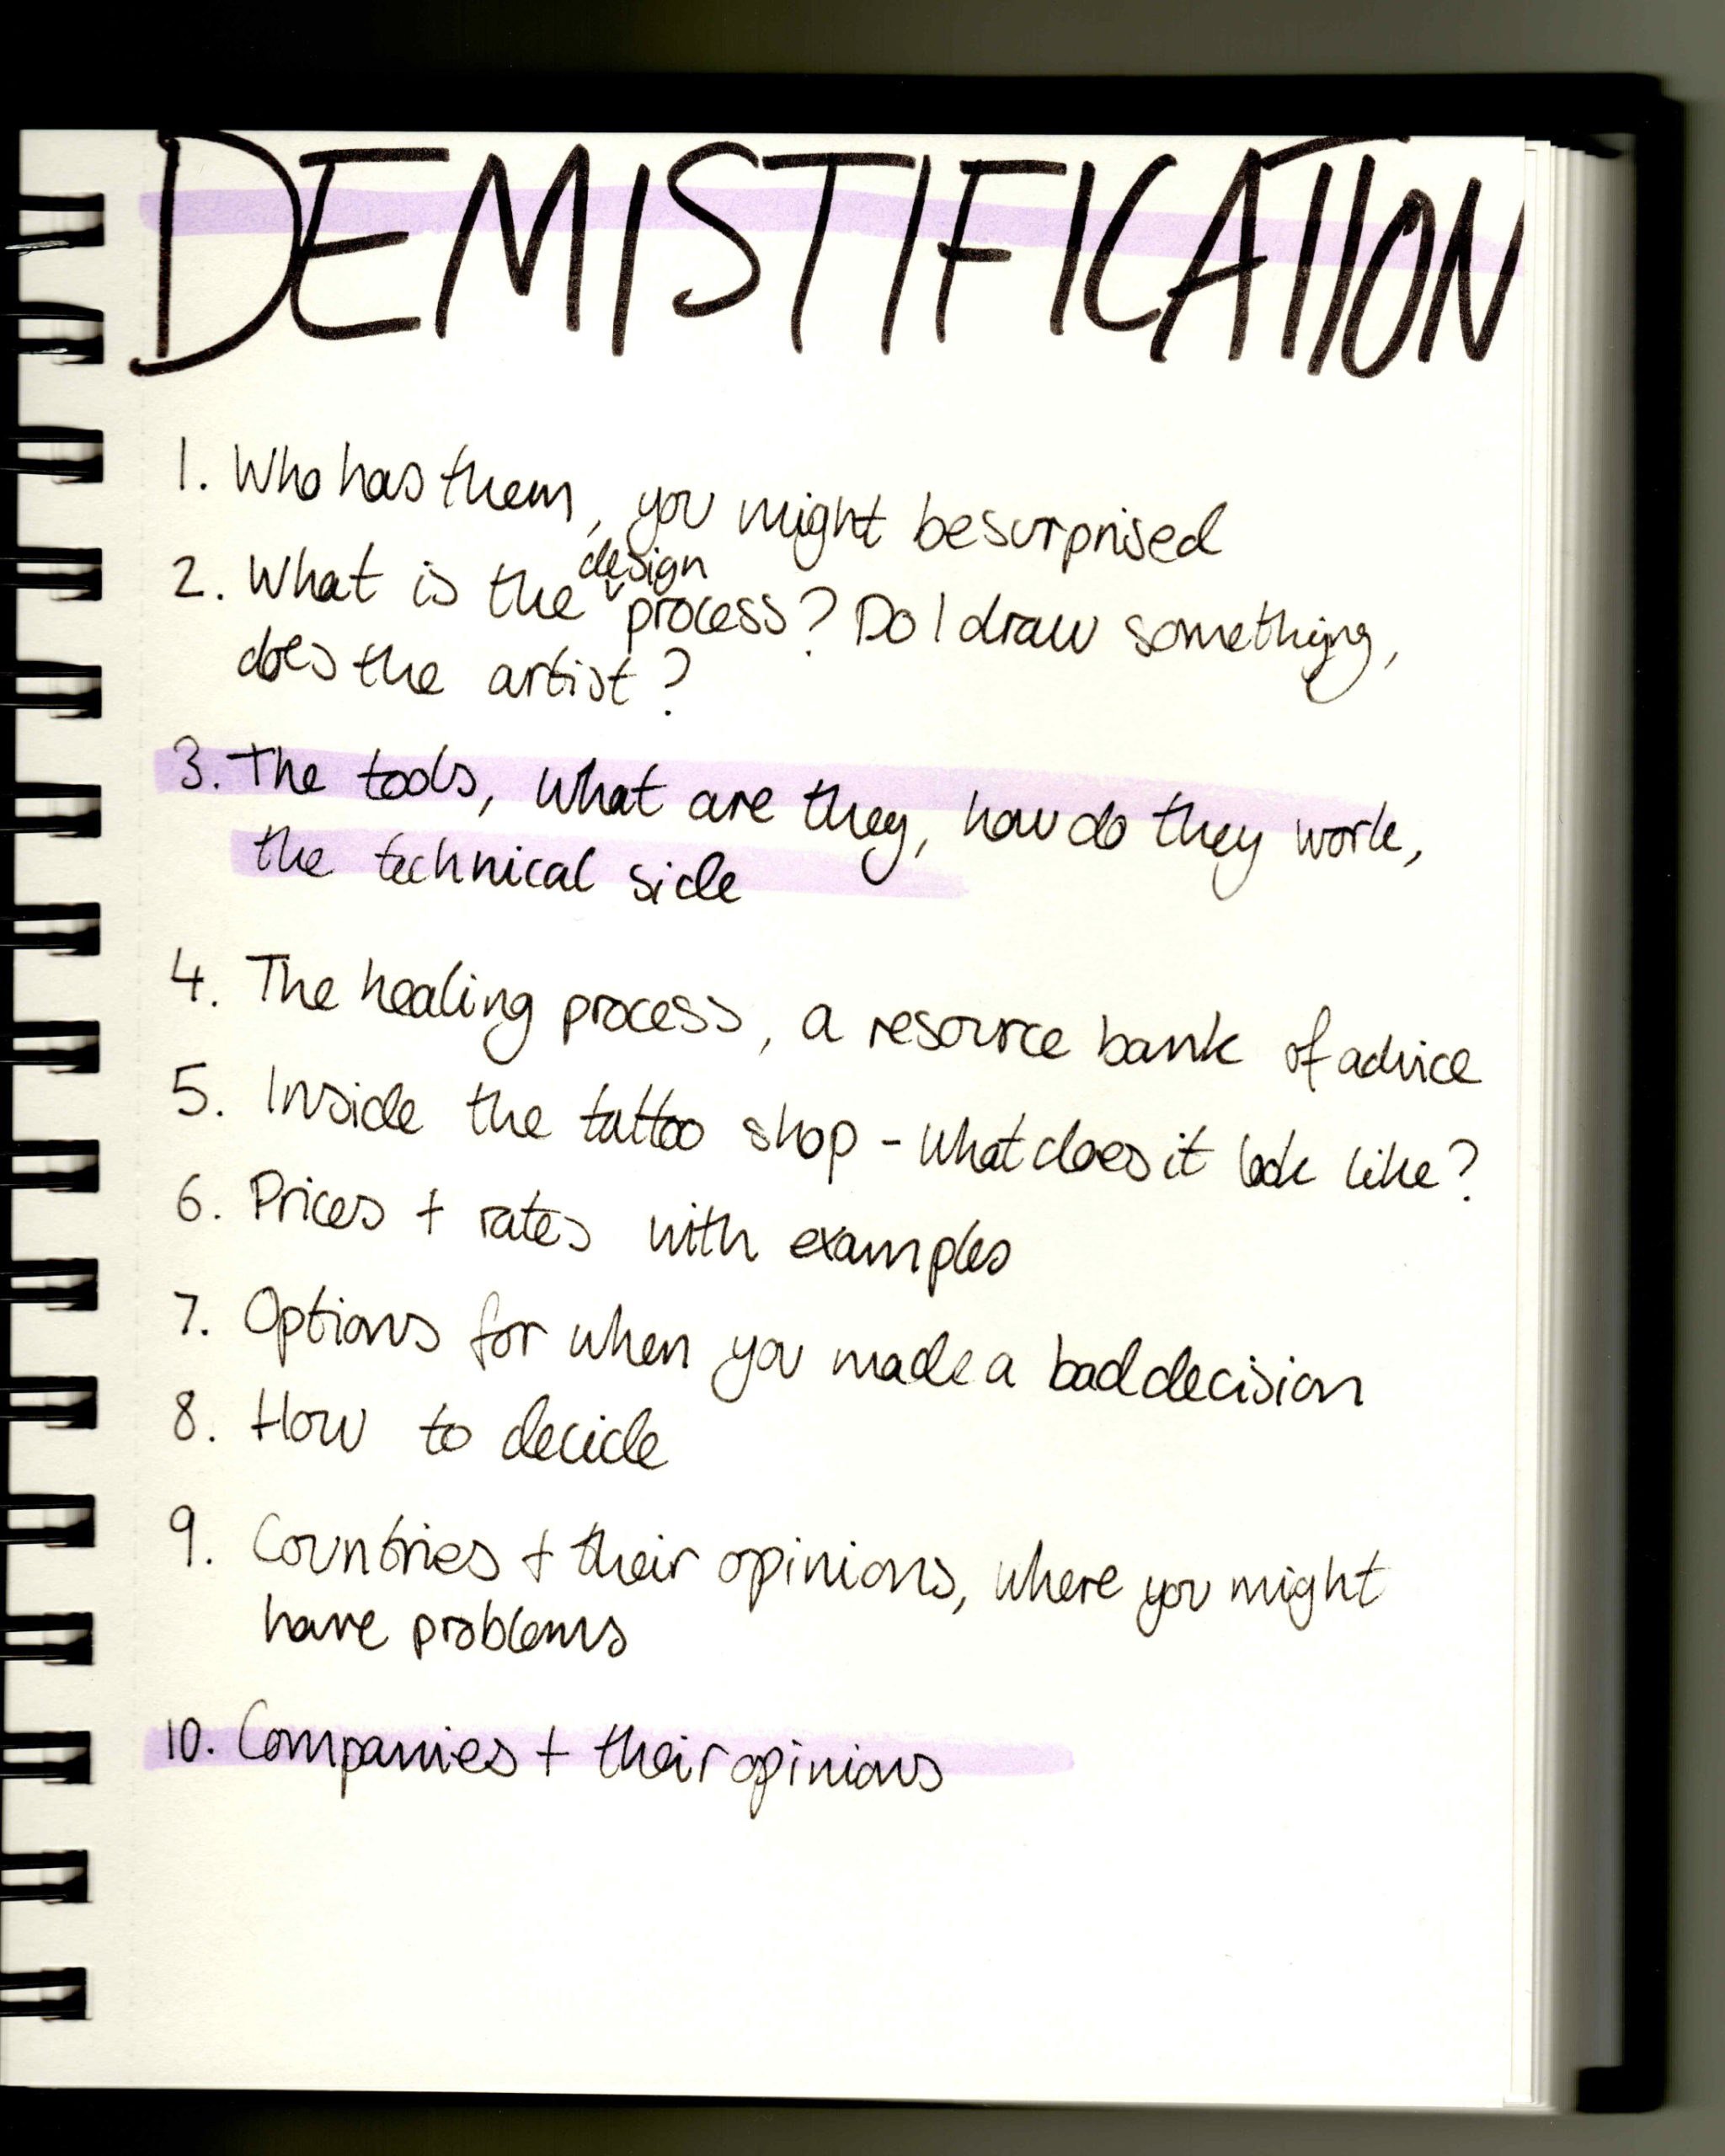 DEMISTIFICATION
1. Who has them, you might be surprised
2. What is the design process? Do I draw something,
does the artist?
3. The tools, what are they, how do they work,
the technical side
4. The healing process, a resource bank of advice
5. Inside the tattoo shop - what does it look like?
6. Prices + rates with examples
7. Options for when you made a bad decision
8. How to decide
9. Countries + their opinions, where you might
have problems
10. Companies + their opinions